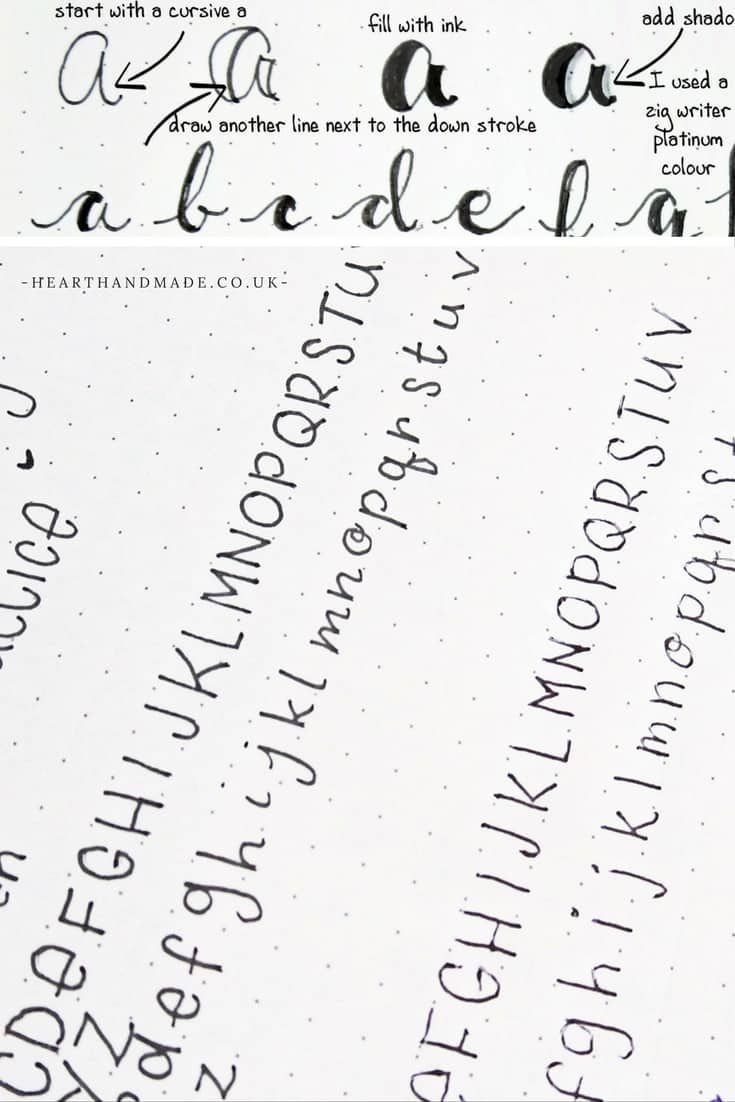 start with a cursive a
fill with ink
add shado
a a a a
I used a
zig writer
platinum
colour
draw another line next to the down stroke
a b c d e f g
-HEARTHANDMADE.CO.UK-
C D e F G H I J K L M N O P Q R S T U
Y Z
d e f g h i j k l m n o p q r s t u v
z
e F G H I J K L M N O P Q R S T U V
f g h i j k l m n o p q r s t